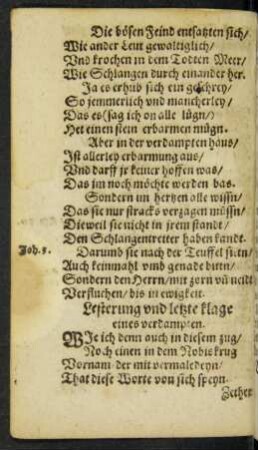 Die bösen Feind entsatzten sich/
Wie ander Leut gewaltiglich/
Vnd krochen in dem Todten Meer/
Wie Schlangen durch einander her.
Ja es erhub sich ein geschrey/
So jemmerlich vnd mancherley/
Das es (sag ich on alle lügn/)
Het einen stein erbarmen mügn.
Aber in der verdampten haus/
Ist allerley erbarmung aus/
Vnd darff jr keiner hoffen was/
Das jm noch möchte werden bas.
Sondern im hertzen alle wissn/
Das sie nur stracks verzagen müssn/
Dieweil sie nicht in jrem standt/
Den Schlangentretter haben kandt.
Joh. 5.
Darumb sie nach der Teuffel sittn/
Auch keinmahl vmb genade bittn/
Sondern den Herrn/mit zorn vñ neidt
Verfluchen/bis in ewigkeit.
Lesterung vnd letzte klage
eines verdampten.
WIe ich denn auch in diesem zug/
Noch einen in dem Nobiskrug
Vornam/der mit vermaledeyn/
That diese Worte von sich speyn.
Zether